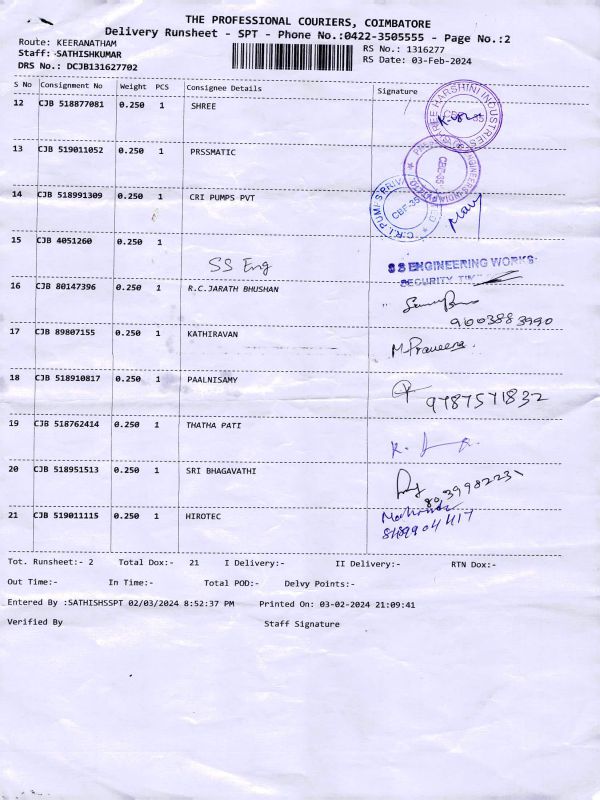 THE PROFESSIONAL COURIERS, COIMBATORE
Delivery Runsheet - SPT - Phone No.:0422-3505555 - Page No.:2
Route: KEERANATHAM RS No.: 1316277
Staff: SATHISHKUMAR RS Date: 03-Feb-2024
DRS No.: DCJB131627702
S No Consignment No Weight PCS Consignee Details Signature
12 CJB 518877081 0.250 1 SHREE
13 CJB 519011052 0.250 1 PRSSMATIC
14 CJB 518991309 0.250 1 CRI PUMPS PVT
15 CJB 4051260 0.250 1
SS Eng
S S ENGINEERING WORKS
SECURITY
16 CJB 80147396 0.250 1 R.C.JARATH BHUSHAN
9603883990
17 CJB 89807155 0.250 1 KATHIRAVAN
M. Praveena
18 CJB 518910817 0.250 1 PAALNISAMY
9787571832
19 CJB 518762414 0.250 1 THATHA PATI
20 CJB 518951513 0.250 1 SRI BHAGAVATHI
21 CJB 519011115 0.250 1 HIROTEC
Tot. Runsheet:- 2 Total Dox:- 21 I Delivery:- II Delivery:- RTN Dox:-
Out Time:- In Time:- Total POD:- Delvy Points:-
Entered By :SATHISHSSPT 02/03/2024 8:52:37 PM Printed On: 03-02-2024 21:09:41
Verified By Staff Signature